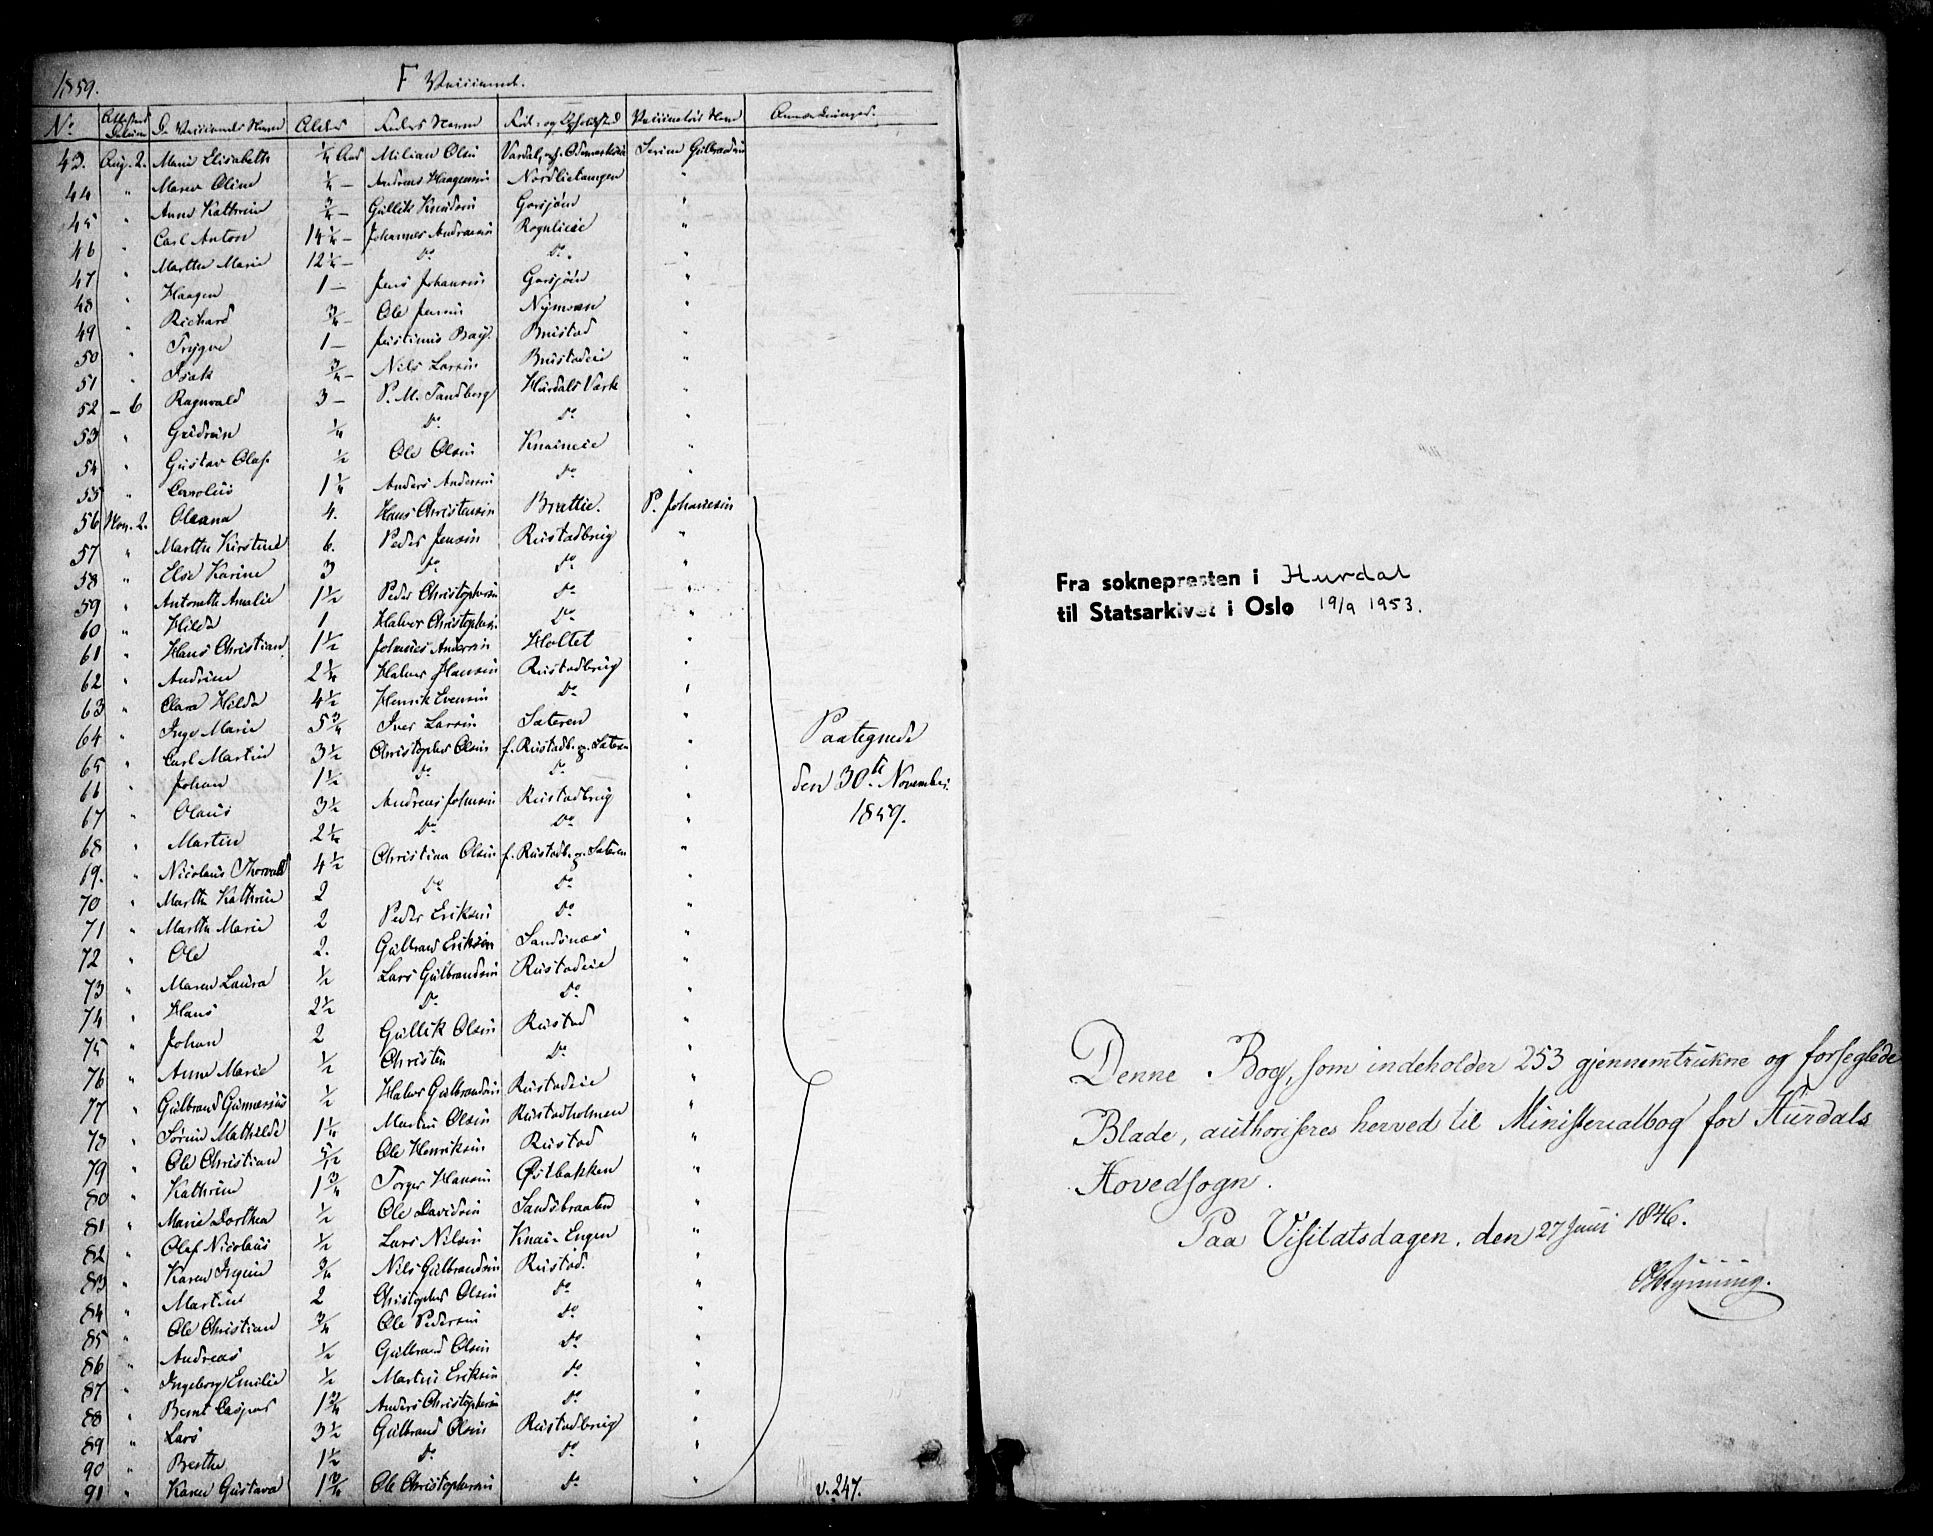 1859. F Vaccinerede.
No | Attestens Datum | De Vaccineredes Navne | Alder | Faders Navne | Føde- og Opholdssted | Vaccinateurs Navn | Anmærkninger.
43. Aug. 2. Maren Elisabeth ¼ Aar Milian Olsen Serine Gulbrandsen
44 " Maren Oline ¼ — Andreas Haagensen Nordlietangen "
45 " Anne Kathrine ¾ — Gullik Knudsen Garsjøen "
46 " Carl Anton 14 ¼ — Johannes Andreasen Rognlieie "
47 " Marthe Marie 12 ¼ — Do Do "
48 " Haagen 1 — Jens Johansen Garsjøen "
49 " Richard ¾ — Ole Jensen Nymoen "
50 " Trygve 1 — Justinus Bay. Brustad "
51 " Isak ¾ — Nils Larsen Brustadeie "
52 — 6 Ragnvald 3 — P. M. Sandberg Hurdals Værk "
53 " Gudrun ¼ Do Do "
54 " Gustav Olaf ½ Ole Olsen Knaineie "
55 " Carolius 1 ¼ Anders Andersen Do "
56 Nov. 2. Oleana 4. Hans Christensen Brattie. P. Johannesen
57 " Marthe Kirstine 6. Peder Jensen Rustadbrug "
58 " Else Karine 3 Do Do "
59 " Antonette Amalie 1 ½ Peder Christophersen Do "
60 " Hilda 1 Halvor Christophersen Do "
61 " Hans Christian 1 ½ Johannes Andersen Holtet "
62 " Andrine 2 ¼ Halvor Hansen Rustadbrug "
63 " Clara Hilda 4 ½ Henrik Evensen Do "
64 " Inge Marie 5 ¾ Iver Larsen Sæteren "
65 " Carl Martin 3 ½ Christopher Olsen f. Rustadb. og Sæteren "
66 " Johan 1 ½ Do Do
67 " Olaus 3 ½ Andreas Johnsen Rustadbrug "
68 " Martin 2 ¼ Do Do "
69. " Nicolaus Thorvald 4 ½ Christian Olsen f. Rustadb. og Sæteren "
70 " Marthe Kathrine 2 Do Do "
71 " Marthe Marie 2 Peder Eriksen Do "
72 " Ole 2. Gulbrand Eriksen Sandsnæs "
73 " Maren Laura ½ Lars Gulbrandsen Rustadeie "
74 " Hans 2 ½ Do Do "
75 " Johan 2 Gullik Olsen Rustad "
76 " Anne Marie ½ Christen Do "
77 " Gulbrand Gunnerius ½ Halvor Gulbrandsen Rustadeie "
78 " Sørine Mathilde 1 ¼ Martin Olsen Rustadholmen "
79 " Ole Christian 5/12 Ole Henriksen Rustad "
80 " Kathrine 1 ¾ Torger Hansen Østbakken "
81 " Marie Dorthea ½ Ole Davidsen Sandsbraaten "
82 " Olaf Nicolaus ½ Lars Nilsen Knai-Engen "
83 " Karen Ingine ¾ Nils Gulbrandsen Rustad. "
84 " Martin 2 Christopher Olsen Do "
85 " Ole Christian ¾ Ole Pedersen Do "
86 " Andreas ½ Gulbrand Olsen Do "
87 " Ingeborg Emilie ½ Martin Eriksen Do "
88 " Bernt Casper 1 ¾ Anders Christophersen Do "
89 " Lars 3 ½ Gulbrand Olsen Rustadbrug "
90 " Berthe 1 ½ Do Do "
91 " Karen Gustava 1 ¾ Ole Christophersen Do "
Paategnede
den 30te November
1859.
v. 247.
Fra soknepresten i Hurdal
til Statsarkivet i Oslo 19/9 1953.
Denne Bog, som indeholder 253 gjennemtrukne og forseglede
Blade, authoriseres herved til Ministerialbog for Hurdals
Hovedsogn.
Paa Visitatsdagen, den 27 Juni 1846.